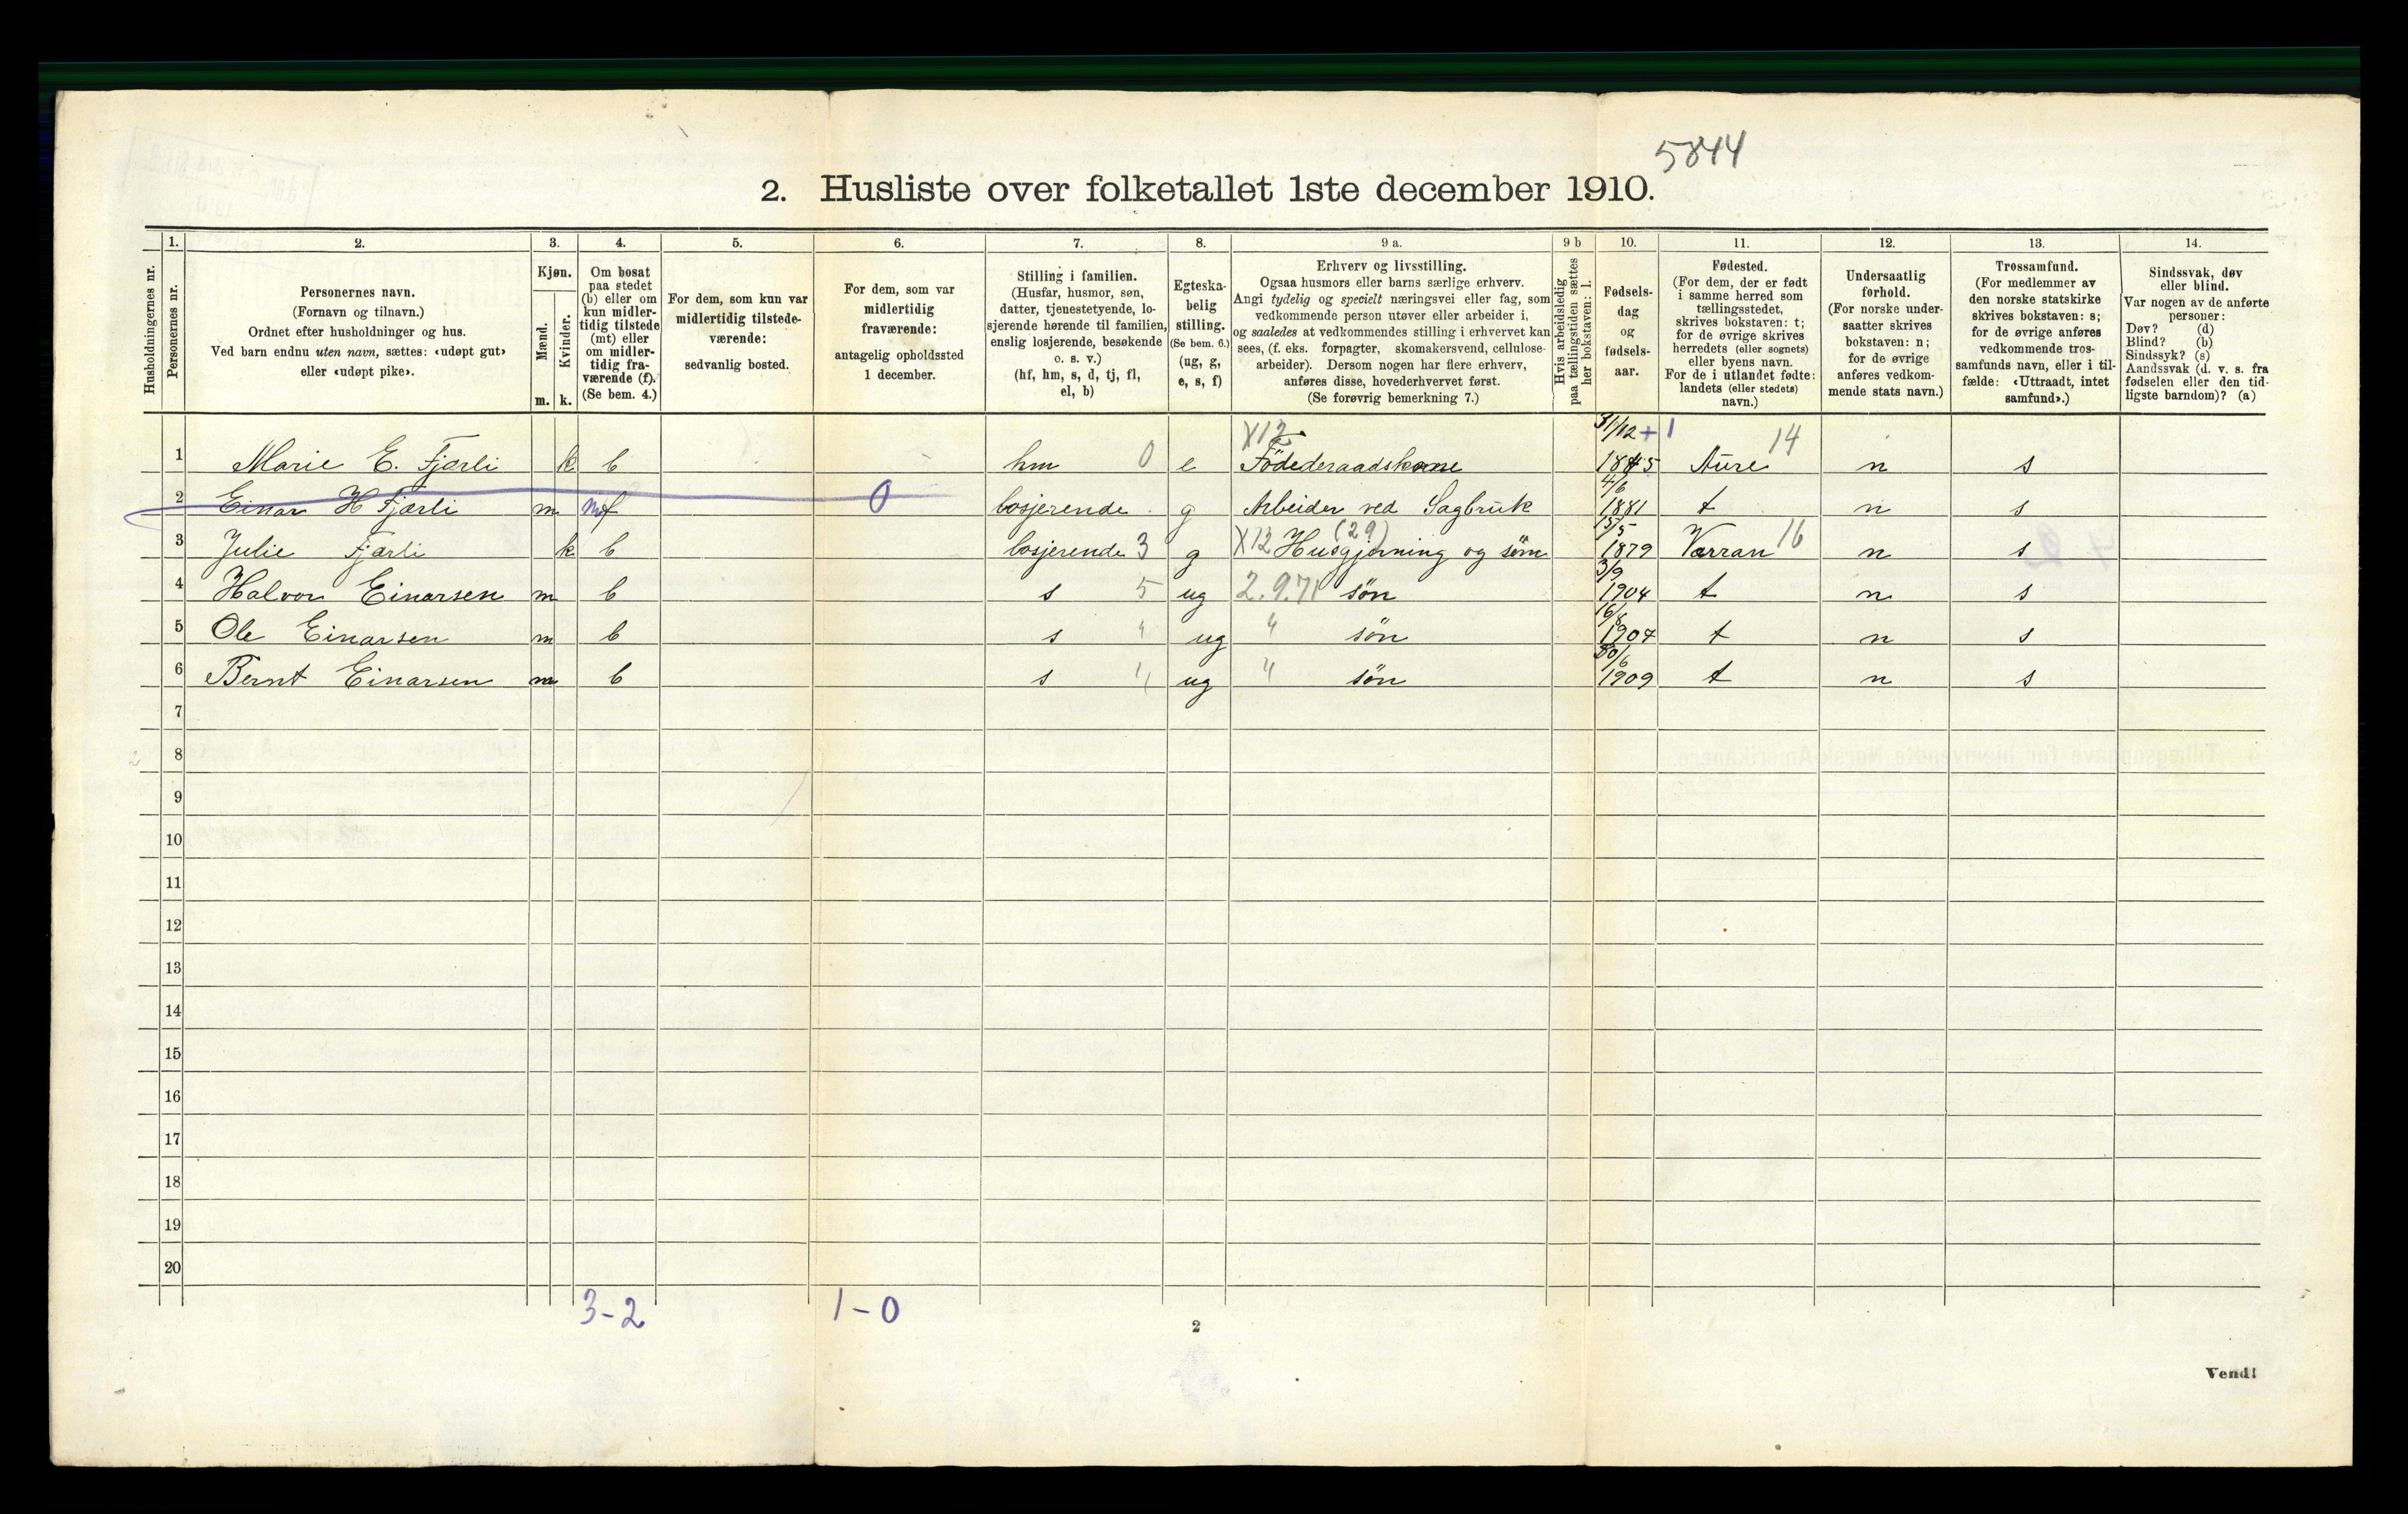 5844
2. Husliste over folketallet 1ste december 1910.
Husholdningernes nr.
1. Personernes nr.
2. Personernes navn.
(Fornavn og tilnavn.)
Ordnet efter husholdninger og hus.
Ved barn endnu uten navn, sættes: «udøpt gut»
eller «udøpt pike».
3. Kjøn.
Mænd. m.
Kvinder. k.
4. Om bosat
paa stedet
(b) eller om
kun midler-
tidig tilstede
(mt) eller
om midler-
tidig fra-
værende (f).
(Se bem. 4.)
5. For dem, som kun var
midlertidig tilstede-
værende:
sedvanlig bosted.
6. For dem, som var
midlertidig
fraværende:
antagelig opholdssted
1 december.
7. Stilling i familien.
(Husfar, husmor, søn,
datter, tjenestetyende, lo-
sjerende hørende til familien,
enslig losjerende, besøkende
o. s. v.)
(hf, hm, s, d, tj, fl,
el, b)
8. Egteska-
belig
stilling.
(Se bem. 6.)
(ug, g,
e, s, f)
9 a. Erhverv og livsstilling.
Ogsaa husmors eller barns særlige erhverv.
Angi tydelig og specielt næringsvei eller fag, som
vedkommende person utøver eller arbeider i,
og saaledes at vedkommendes stilling i erhvervet kan
sees, (f. eks. forpagter, skomakersvend, cellulose-
arbeider). Dersom nogen har flere erhverv,
anføres disse, hovederhvervet først.
(Se forøvrig bemerkning 7.)
9 b Hvis arbeidsledig
paa tællingstiden sættes
her bokstaven: l.
10. Fødsels-
dag
og
fødsels-
aar.
11. Fødested.
(For dem, der er født
i samme herred som
tællingsstedet,
skrives bokstaven: t;
for de øvrige skrives
herredets (eller sognets)
eller byens navn.
For de i utlandet fødte:
landets (eller stedets)
navn.)
12. Undersaatlig
forhold.
(For norske under-
saatter skrives
bokstaven: n;
for de øvrige
anføres vedkom-
mende stats navn.)
13. Trossamfund.
(For medlemmer av
den norske statskirke
skrives bokstaven: s;
for de øvrige anføres
vedkommende tros-
samfunds navn, eller i til-
fælde: «Uttraadt, intet
samfund».)
14. Sindssvak, døv
eller blind.
Var nogen av de anførte
personer:
Døv? (d)
Blind? (b)
Sindssyk? (s)
Aandssvak (d. v. s. fra
fødselen eller den tid-
ligste barndom)? (a)
X12 31/12 + 1 14
1 Marie E. Fjærli k b hm 0 e Födederaadskone 1845 Aure n s
2 Einar H Fjærli m mf 0 losjerende g Arbeider ved Sagbruk 4/6 1881 t n s
3 Julie Fjærli k b losjerende 3 g X12 Husgjerning og söm (29) 15/5 1879 Varran 16 n s
4 Halvor Einarsen m b s 5 ug 2.9.71 sön 3/9 1904 t n s
5 Ole Einarsen m b s " ug " sön 16/8 1907 t n s
6 Bernt Einarsen m b s " ug " sön 30/6 1909 t n s
7
8
9
10
11
12
13
14
15
16
17
18
19
20
3-2 1-0
2
Vend!